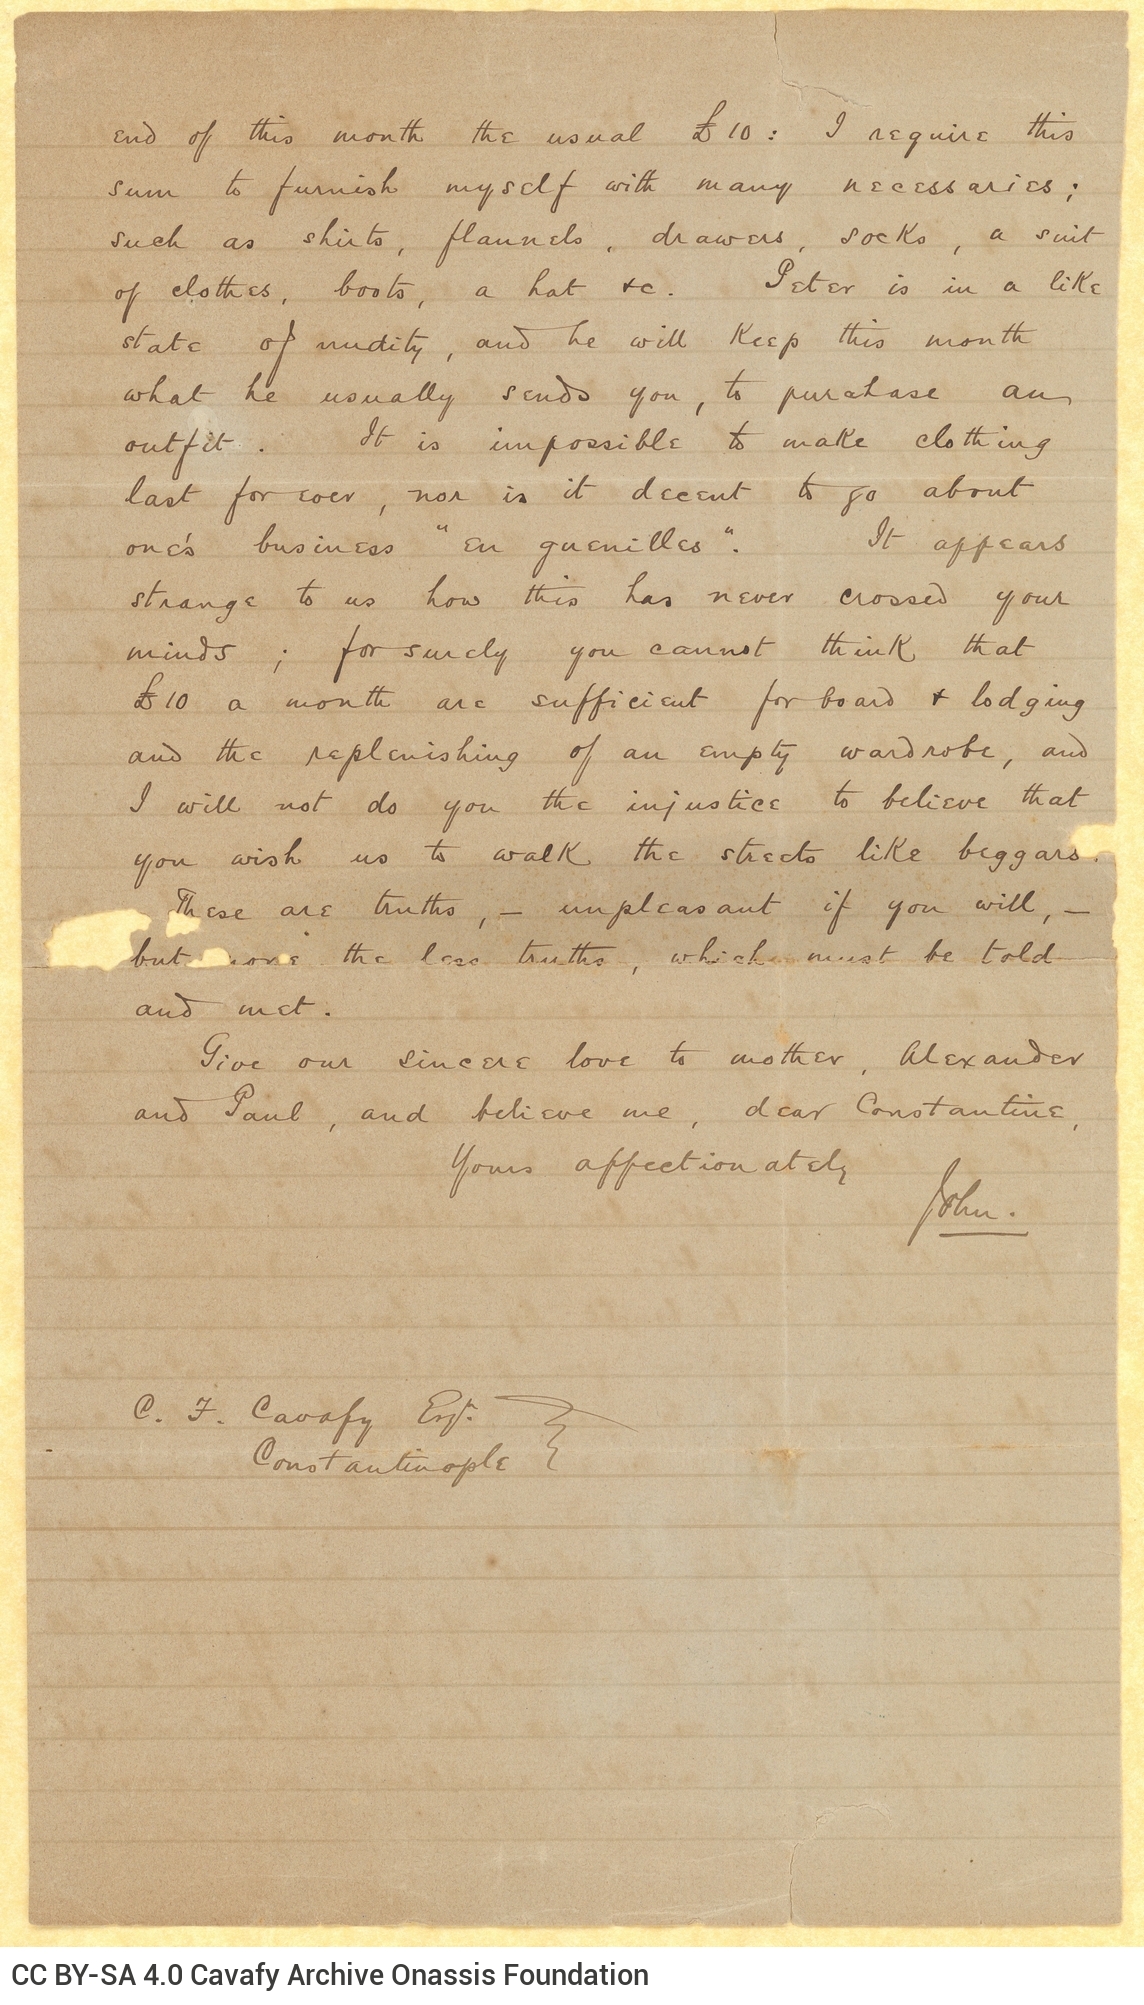 end of this month the usual £10: I require this
sum to furnish myself with many necessaries;
such as shirts, flannels, drawers, socks, a suit
of clothes, boots, a hat &c. Peter is in a like
state of nudity, and he will keep this month
what he usually sends you, to purchase an
outfit. It is impossible to make clothing
last for ever, nor is it decent to go about
one's business "en guenilles". It appears
strange to us how this has never crossed your
minds; for surely you cannot think that
£10 a month are sufficient for board & lodging
and the replenishing of an empty wardrobe, and
I will not do you the injustice to believe that
you wish us to walk the streets like beggars.
These are truths, — unpleasant if you will, —
but none the less truths, which must be told
and met.
Give our sincere love to mother, Alexander
and Paul, and believe me, dear Constantine,
Yours affectionately
John.
C. F. Cavafy Esqr.
Constantinople
CC BY-SA 4.0 Cavafy Archive Onassis Foundation